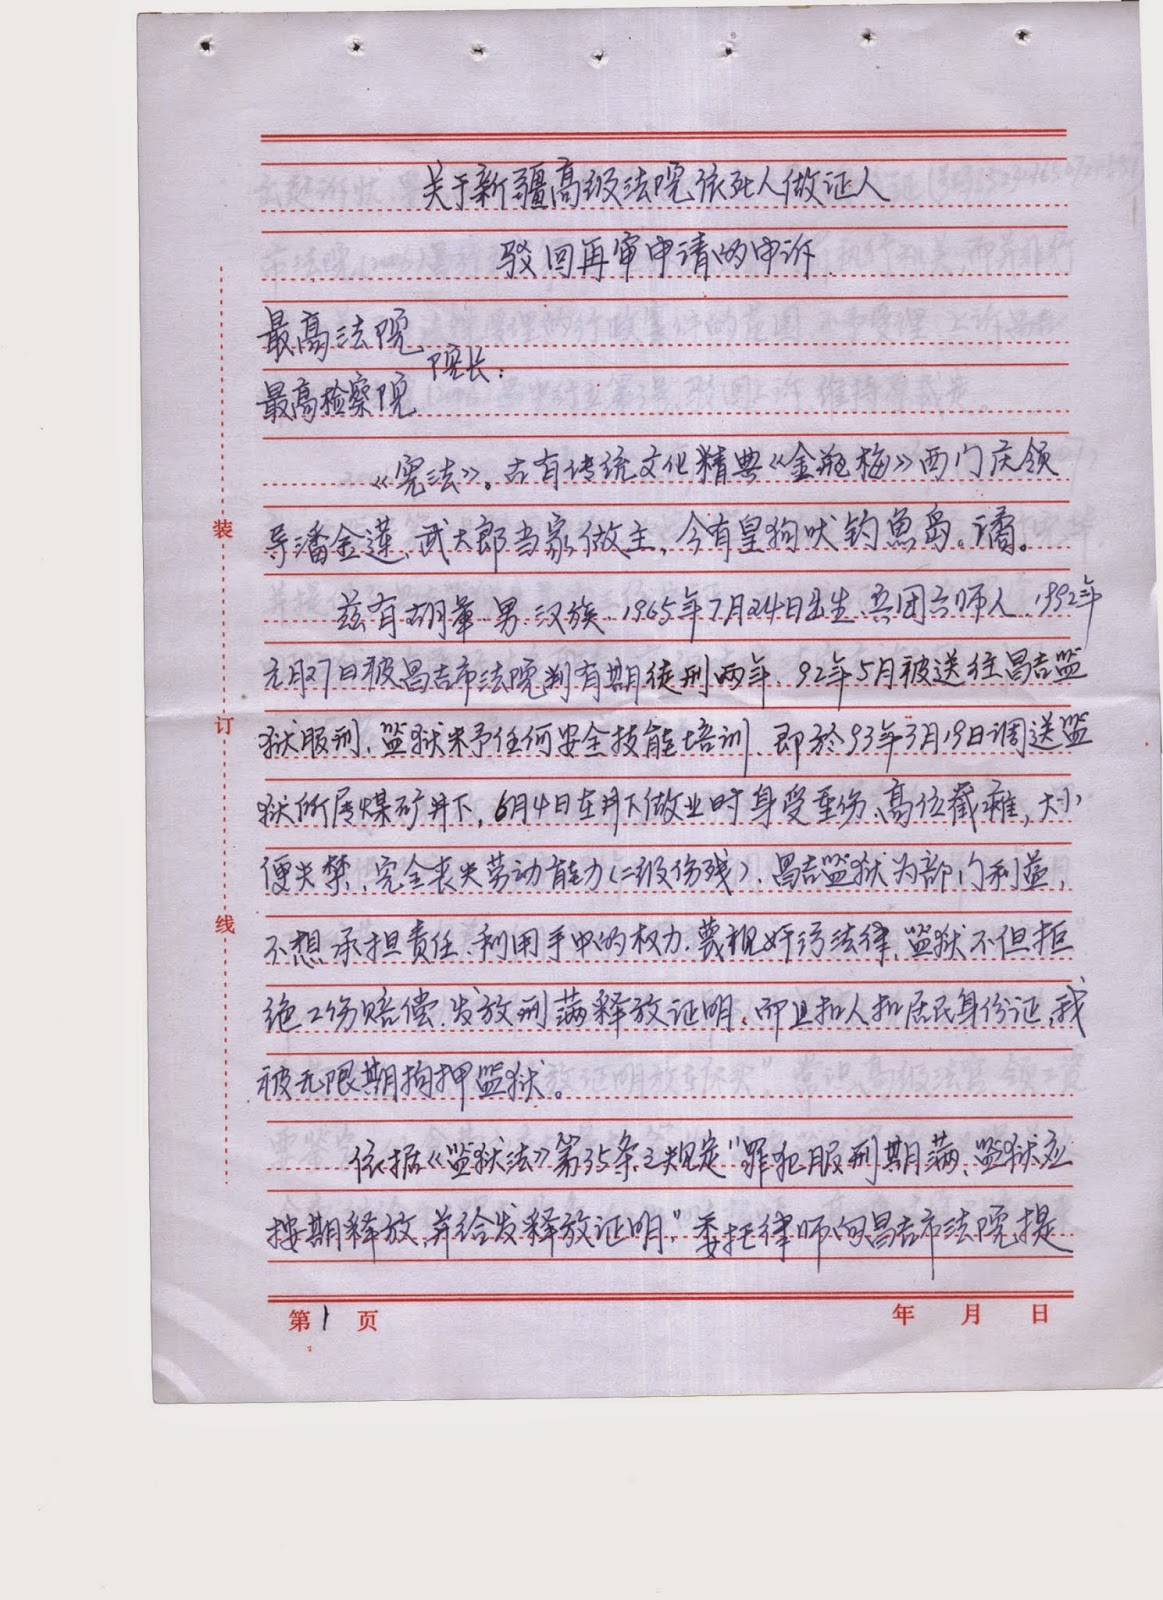 关于新疆高级法院依死人做证人
驳回再审申请的申诉
最高法院
院长：
最高检察院
《宪法》。古有传统文化精典《金瓶梅》西门庆领
导潘金莲、武大郎当家做主，今有皇狗吠钓魚岛。谲。
兹有胡军、男、汉族、1965年7月24日出生、兵团六师人、1992年
元月27日被昌吉市法院判有期徒刑两年、92年5月被送往昌吉监
狱服刑、监狱未予任何安全技能培训、即於93年3月19日调送监
狱所属煤矿井下，6月4日在井下做业时身受重伤、高位截瘫，大小
便失禁、完全丧失劳动能力（二级伤残）、昌吉监狱为部门利益，
不想承担责任、利用手中的权力、蔑视奸污法律、监狱不但拒
绝工伤赔偿、发放刑满释放证明、而且扣人扣居民身份证，我
被无限期拘押监狱。
依据《监狱法》第35条之规定"罪犯服刑期满、监狱应
按期释放，并给发释放证明"委托律师向昌吉市法院提
装
订
线
第1页
年 月 日